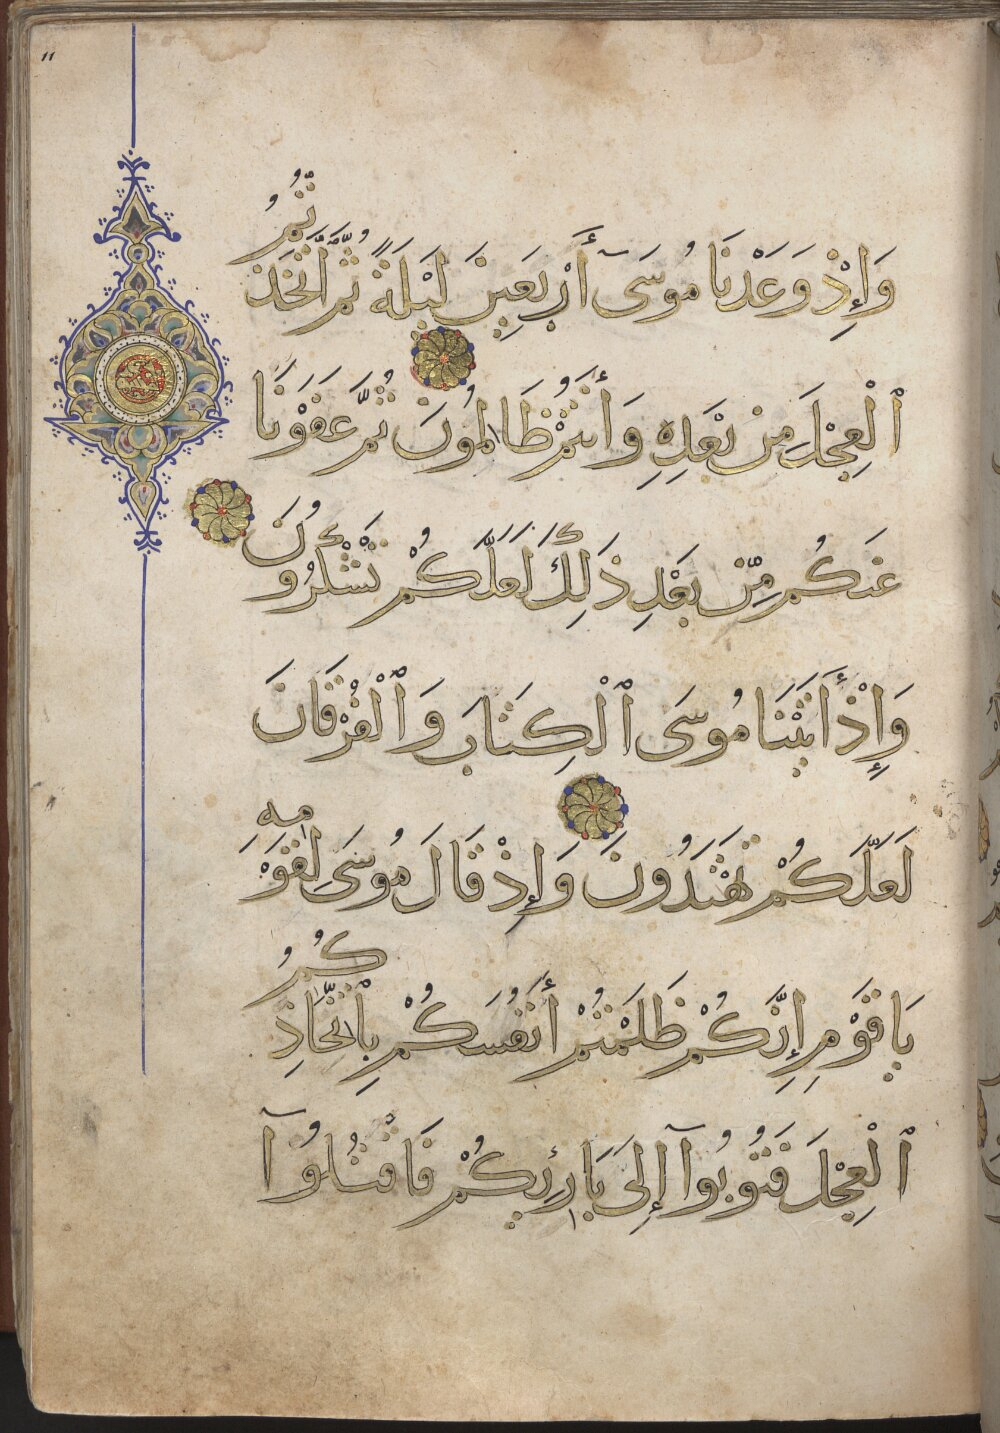 وَإِذْ وَعَدْنَا مُوسَىٓ أَرْبَعِينَ لَيْلَةً ثُمَّ اتَّخَذْتُمُ
ٱلْعِجْلَ مِنْ بَعْدِهِ وَأَنتُمْ ظَالِمُونَ ثُمَّ عَفَوْنَا
عَنكُم مِّنْ بَعْدِ ذَٰلِكَ لَعَلَّكُمْ تَشْكُرُونَ
وَإِذْ أَتَيْنَا مُوسَى ٱلْكِتَابَ وَٱلْفُرْقَانَ
لَعَلَّكُمْ تَهْتَدُونَ وَإِذْ قَالَ مُوسَى لِقَوْمِهِ
يَاقَوْمِ إِنَّكُمْ ظَلَمْتُمْ أَنفُسَكُمْ بِاتِّخَاذِكُمُ
ٱلْعِجْلَ فَتُوبُوآ إِلَى بَارِئِكُمْ فَاقْتُلُوآ